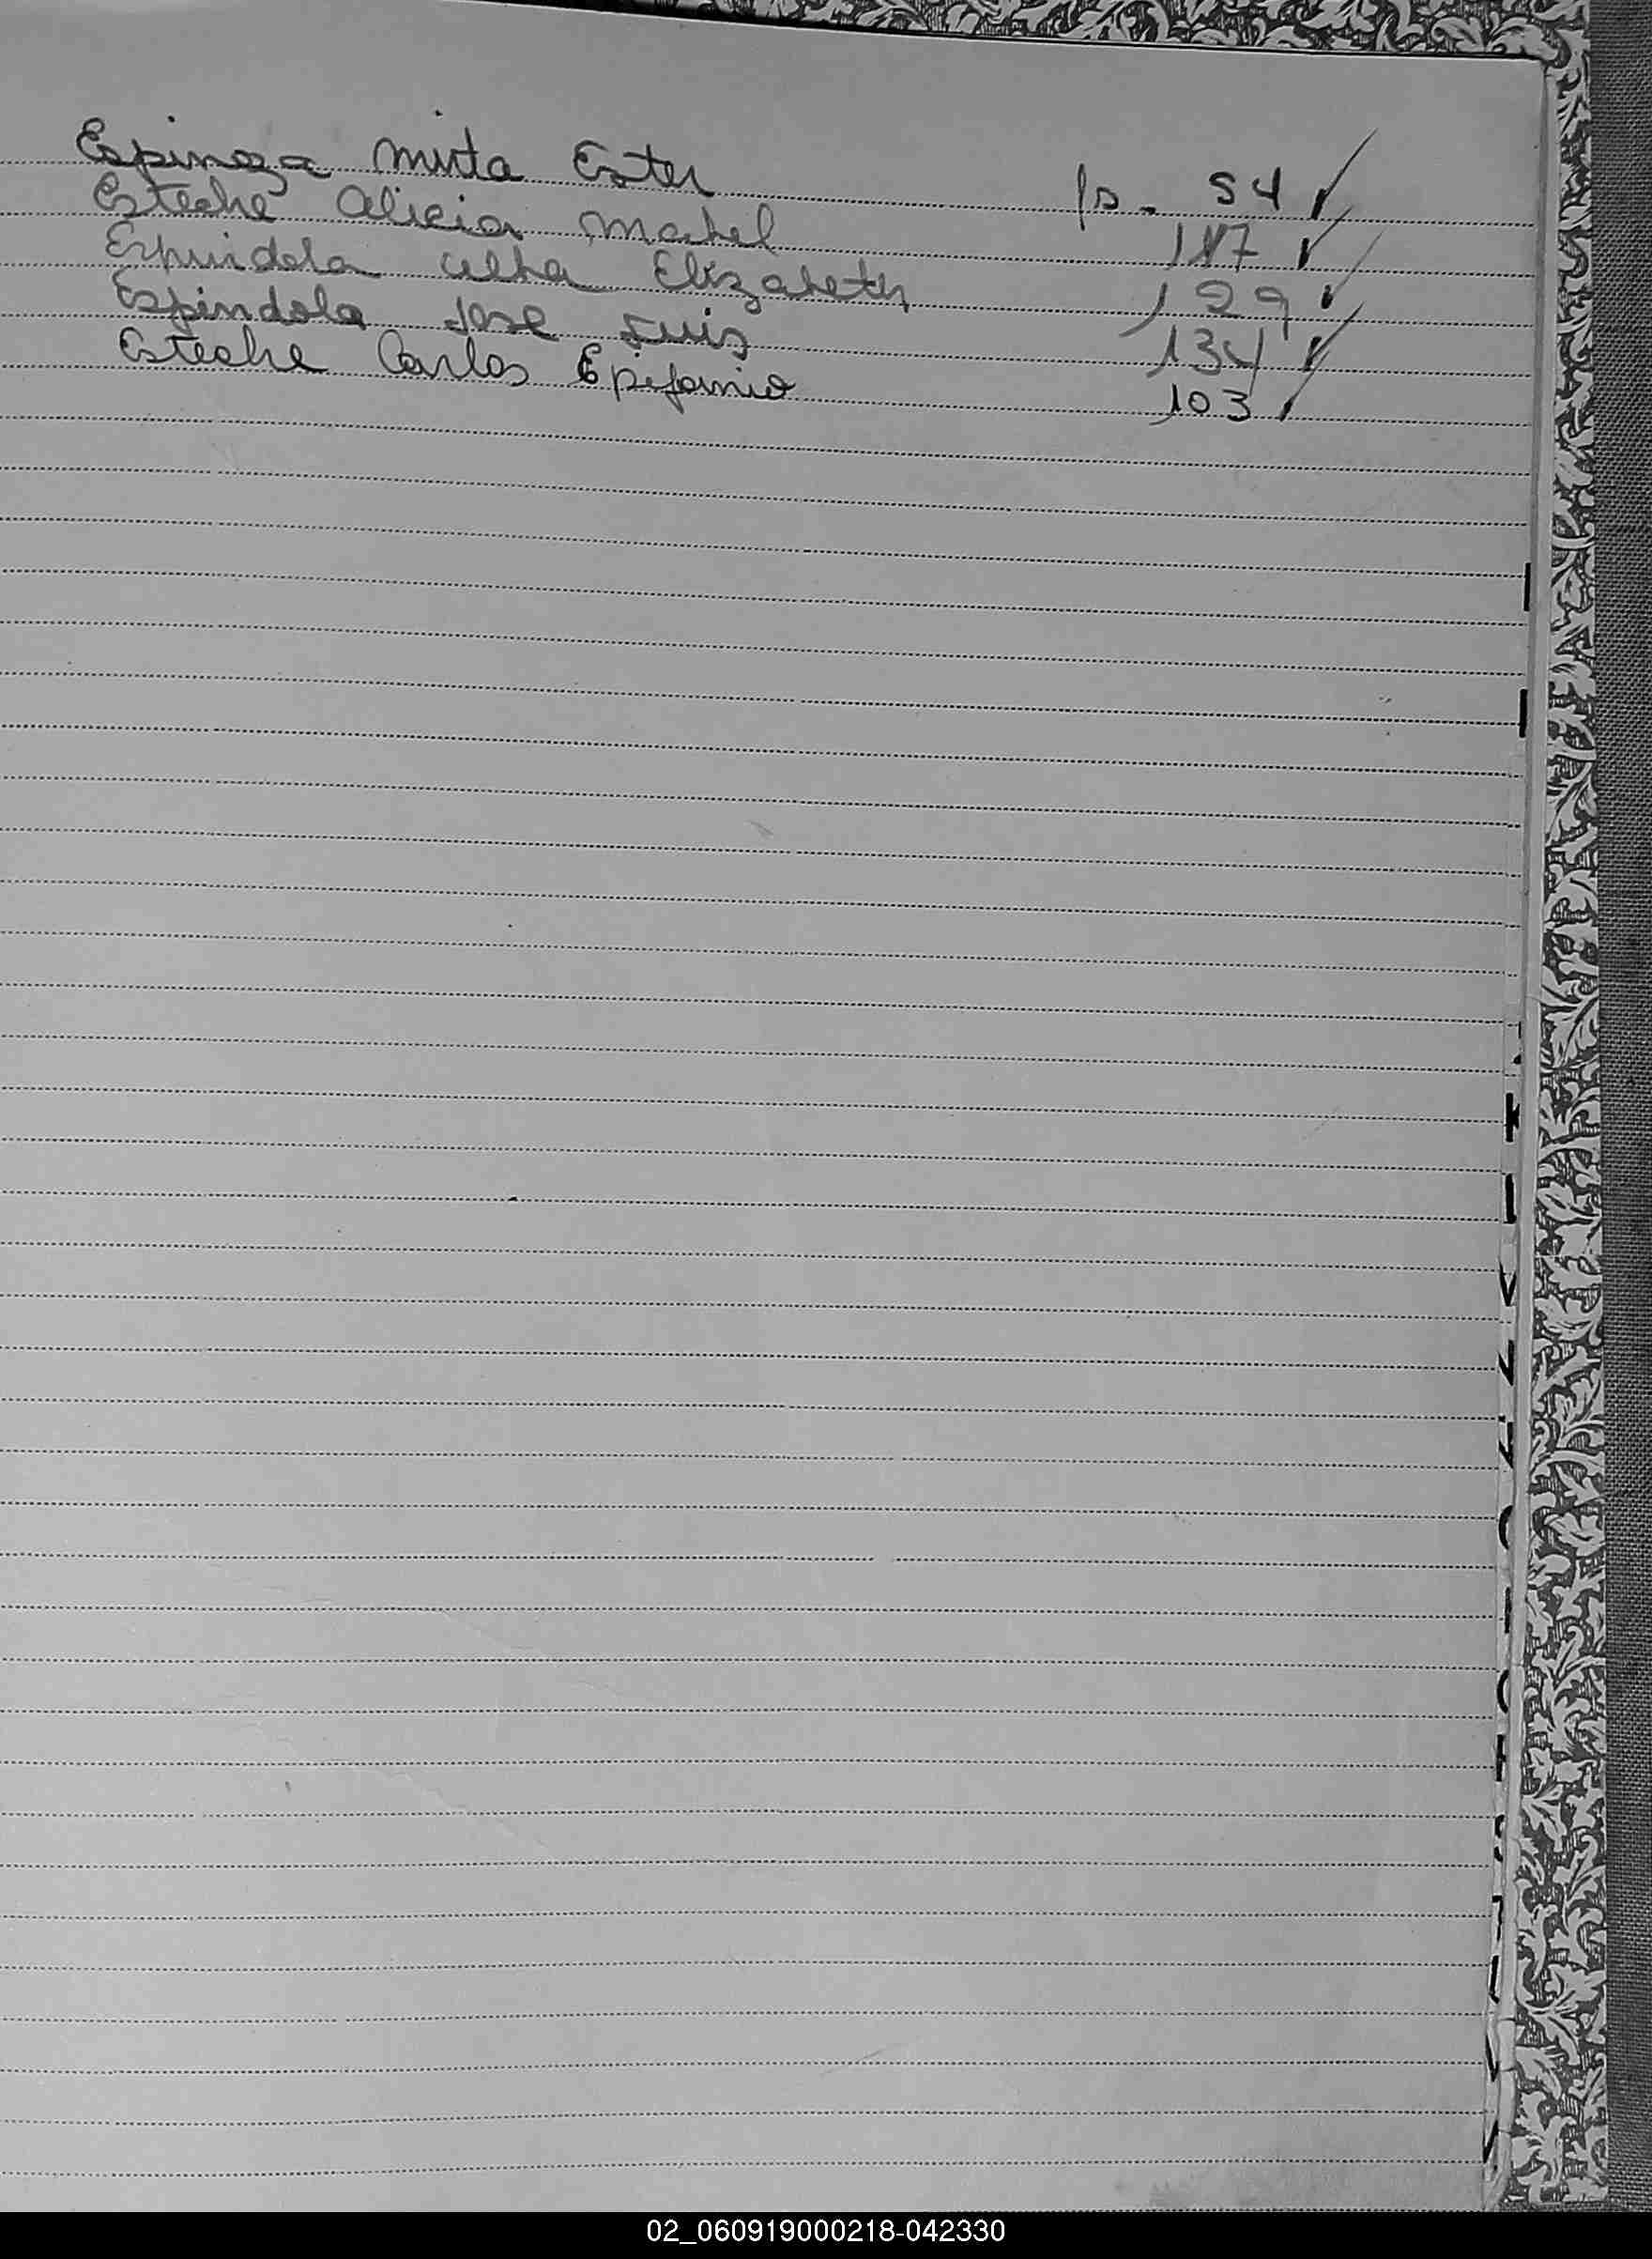 Espinoza Mirta Ester fs. 54
Esteche Alicia Mabel 117
Espindola Elizabeth 129
Espindola Jose Luis 134
Esteche Carlos Epifanio 103
02_060919000218-042330